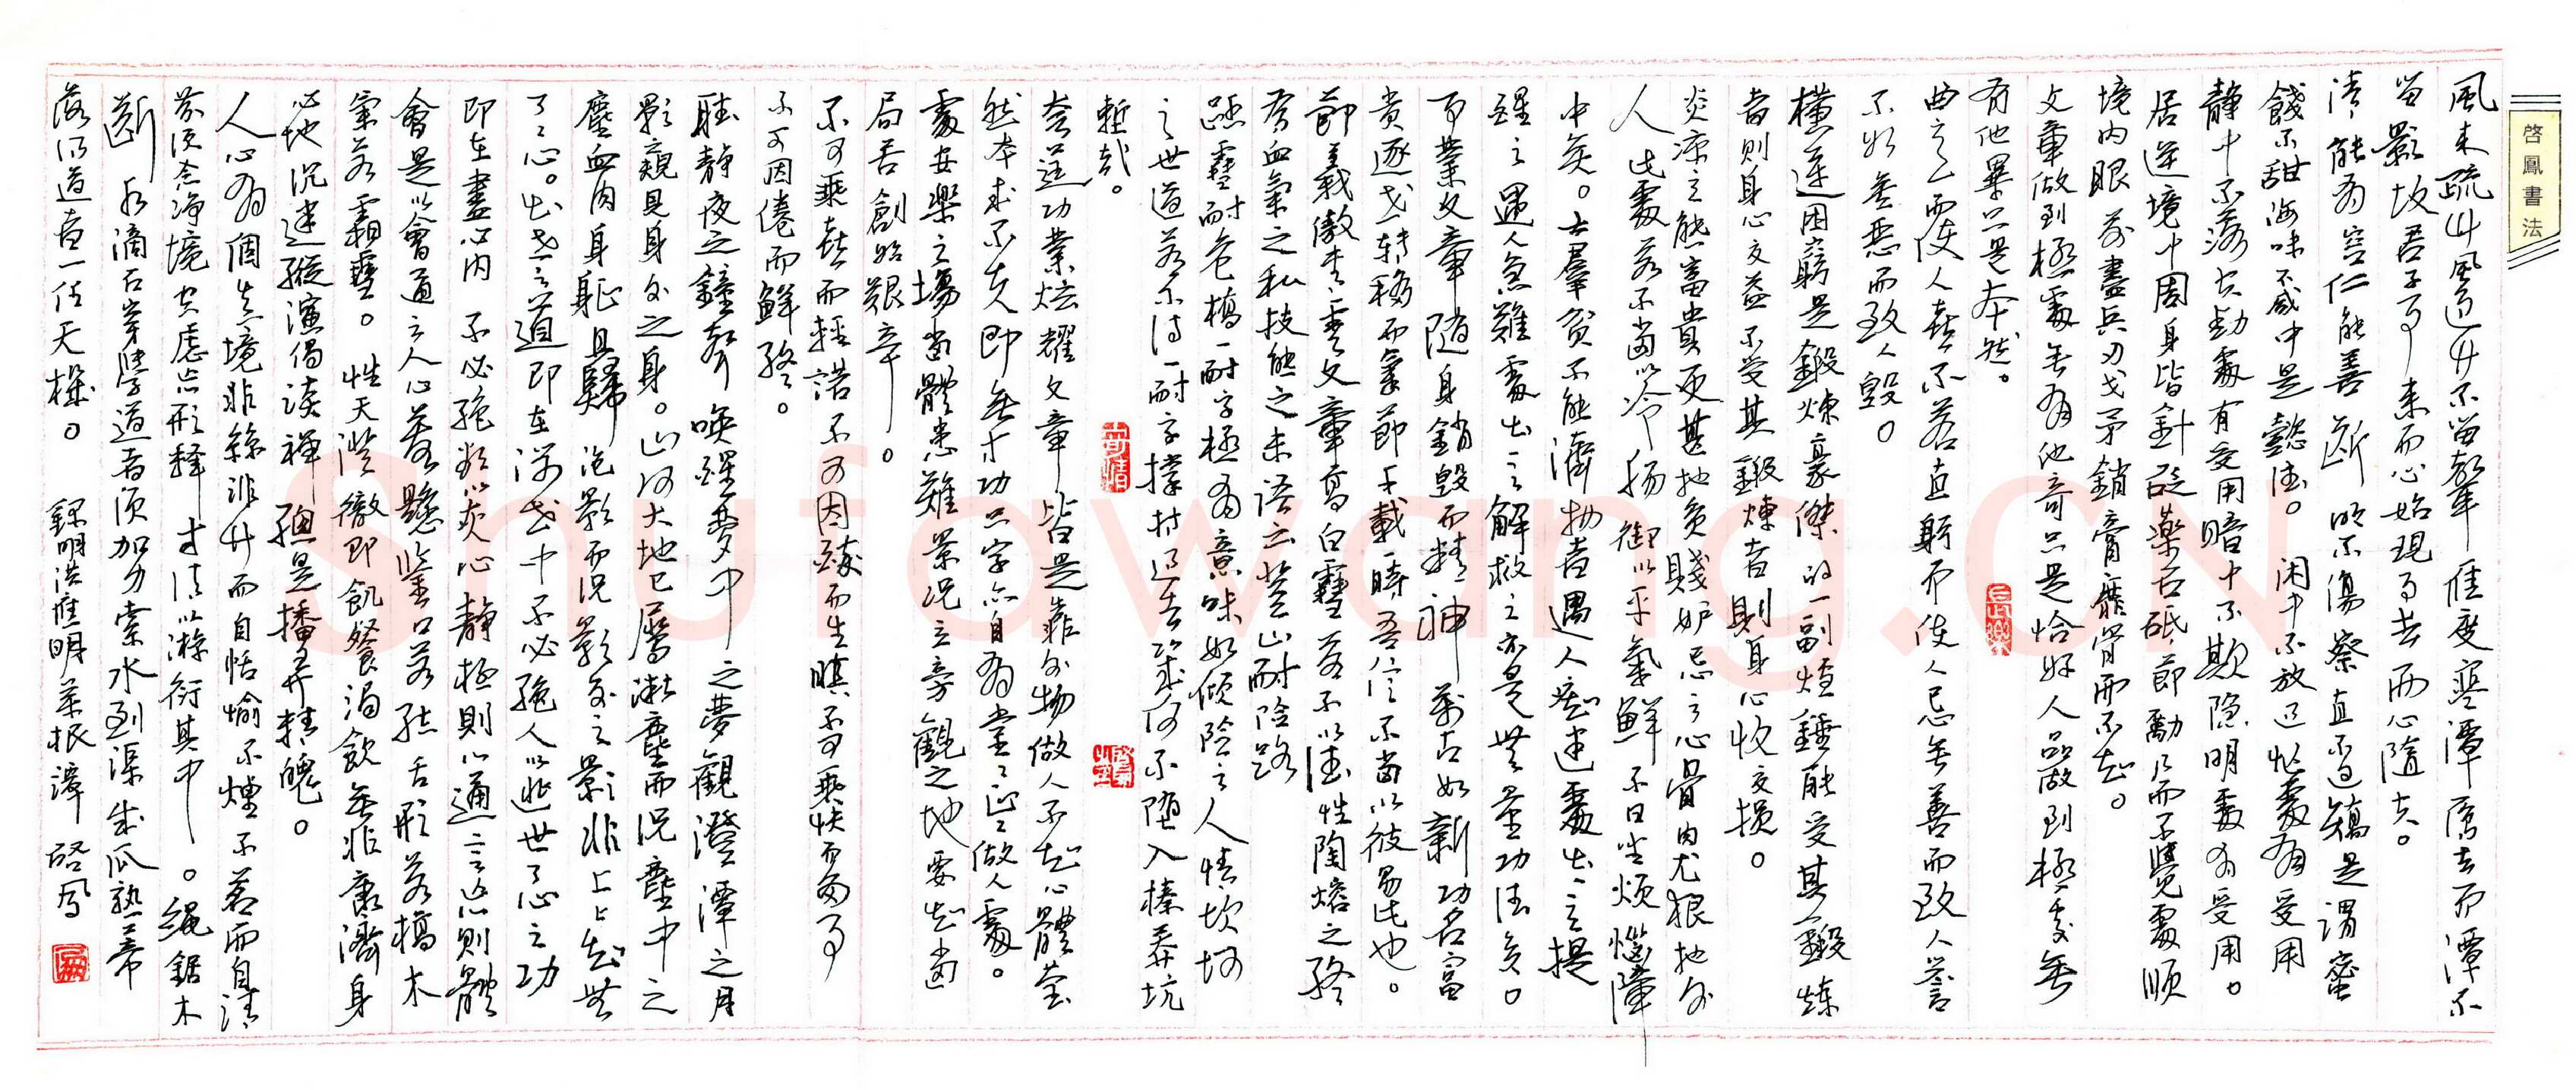 啓鳳書法
風来疏竹風过竹不留聲雁度寒潭雁去而潭不
留影故君子事来而心始現事去而心隨空。
清能有容仁能善斷明不傷察直不过矯是謂蜜
餞不甜海味不咸中是懿德。闲中不放过忙處有受用
静中不落空動處有受用暗中不欺隐明處有受用。
居逆境中周身皆針砭藥石砥節勵行而不覺處順
境内眼前盡兵刃戈矛銷膏靡骨而不知。
文章做到極處無有他奇只是恰好人品做到極處無
有他異只是本然。
曲意而使人喜不若直躬而使人忌無善而致人譽
不如無惡而致人毁。
橫逆困窮是鍛煉豪傑的一副爐錘能受其鍛煉
者則身心交益不受其鍛煉者則身心收交損。
炎凉之態富貴更甚於貧賤妒忌之心骨肉尤狠於外
人此處若不當以冷腸御以平氣鮮不日坐煩惱障
中矣。士羣貧不能濟物者遇人痴迷處出一言提
醒之遇人急難處出一言解救之亦是無量功德矣。
事業文章隨身銷毁而精神萬古如新功名富
貴逐世轉移而氣節千載一時吾信不當以彼易此也。
節義傲青雲文章高白雪若不以德性陶熔之終
為血氣之私技能之末語云登山耐险路
踏雪耐危橋一耐字極有意味如傾險之人情坎坷
之世道若不得一耐字撑持过去幾何不堕入榛莽坑
塹哉。
夸逞功業炫耀文章皆是靠外物做人不知心體瑩
然本来不失即無寸功只字亦自有堂堂正正做人處。
處安樂之場當體患難景况立旁觀之地要知當
局苦創始艱辛。
不可乘喜而輕諾不可因醉而生瞋不可乘快而多事
不可因倦而鮮終。
聽静夜之鐘聲唤醒夢中之夢觀澄潭之月
影窺見身外之身。山河大地已屬微塵而况塵中之
塵血肉身軀且歸泡影而况影外之影非上上知無
了了心。出世之道即在涉世中不必绝人以逃世了心之功
即在盡心内不必绝欲以灰心静極則心通言忘則體
會是以會通之人心若懸鑒口若结舌形若槁木
氣若霜雪。性天澄徹即飢餐渴飲無非康濟身
心地沉迷縱演偈談禪總是播弄精魄。
人心有個真境非絲非竹而自恬愉不煙不茗而自清
芬須念净境空慮忘形釋才得以游衍其中。绳鋸木
斷水滴石穿學道者須加力索水到渠成瓜熟蒂
落得道者一任天機。 錄明洪應明菜根譚 啓鳳
Shufawang.CN